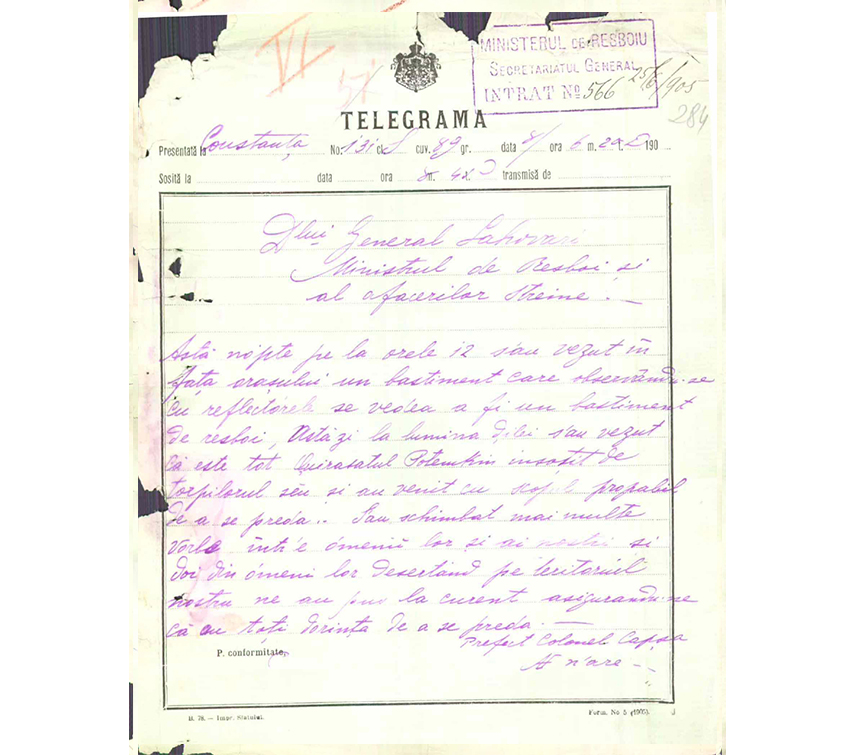 VI
MINISTERUL DE RESBOIU
SECRETARIATUL GENERAL
INTRAT № 566 25/6/1905
284
TELEGRAMA
Presentată la Constanța No. 131 cl. cuv. 89 gr. data 8/ ora 6 m. 190
Sosită la data ora m. transmisă de
Dlui General Lahovari
Ministrul de Resboi si
al afacerilor Streine. —
Astă nópte pe la orele 12 s'au vezut în
fața orașului un bastiment care observându-se
cu reflectorele se vedea a fi un bastiment
de resboi, Astăzi la lumina dilei s'au vezut
că este tot Cuirasatul Potemkin însoțit de
torpilorul sĕu si au venit cu scopul propabil
de a se preda. Sau schimbat mai multe
vorbe într'e ómenii lor si ai nostri si
doi din ómeni lor desertând pe teritoriul
nostru ne au pus la curent asigurandu-ne
că au toți dorința de a se preda. —
Prefect Colonel Capșa
P. conformitate,
n'are —
II. 78. — Impr. Statului.
Form. No 5 (1905).